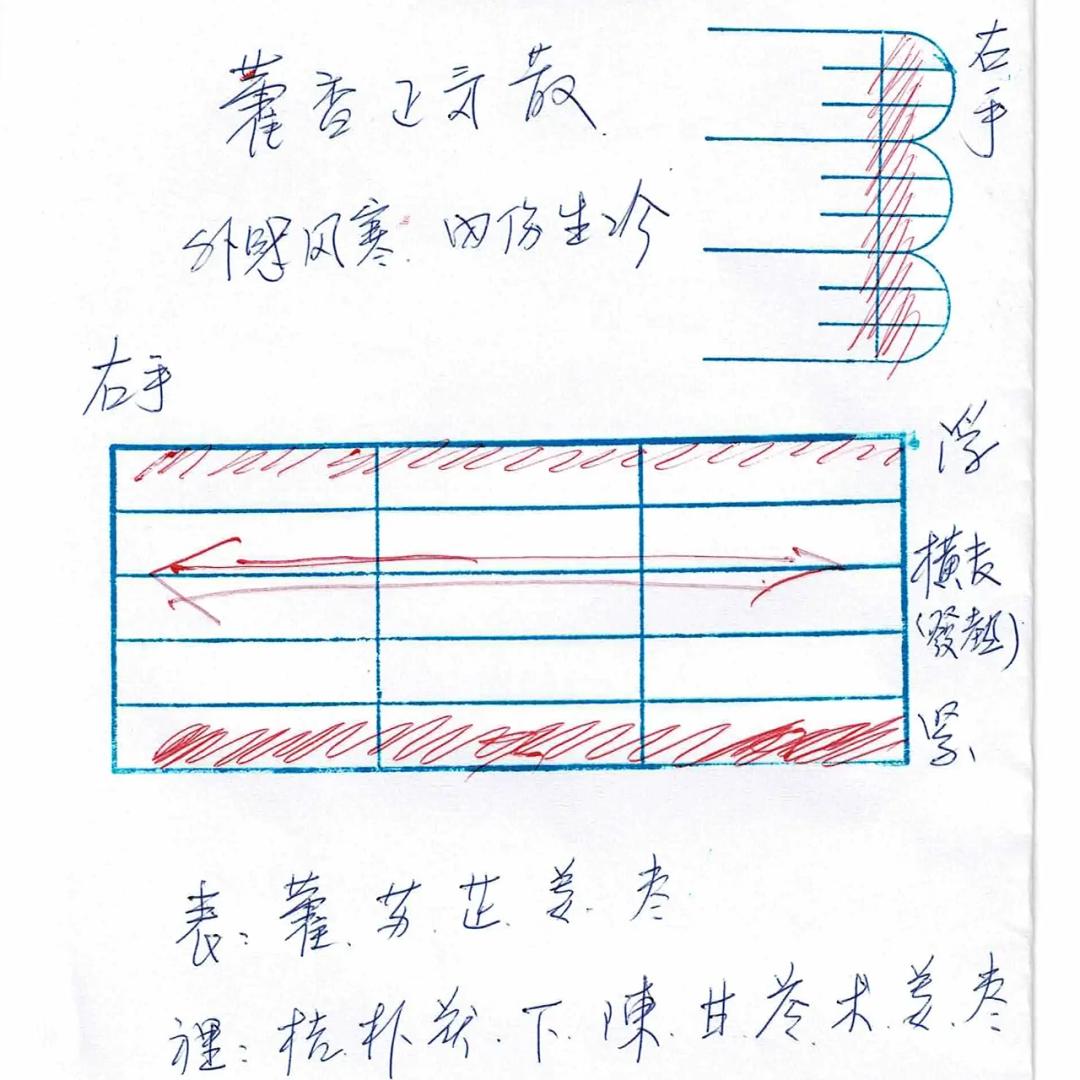 藿香正气散
右手
外感风寒. 内伤生冷
右手
浮
橫
(發熱)
紧
表: 藿. 苏. 芷. 姜. 枣
裡: 桔. 朴. 茯. 下. 陳. 甘. 苓. 术. 姜. 枣